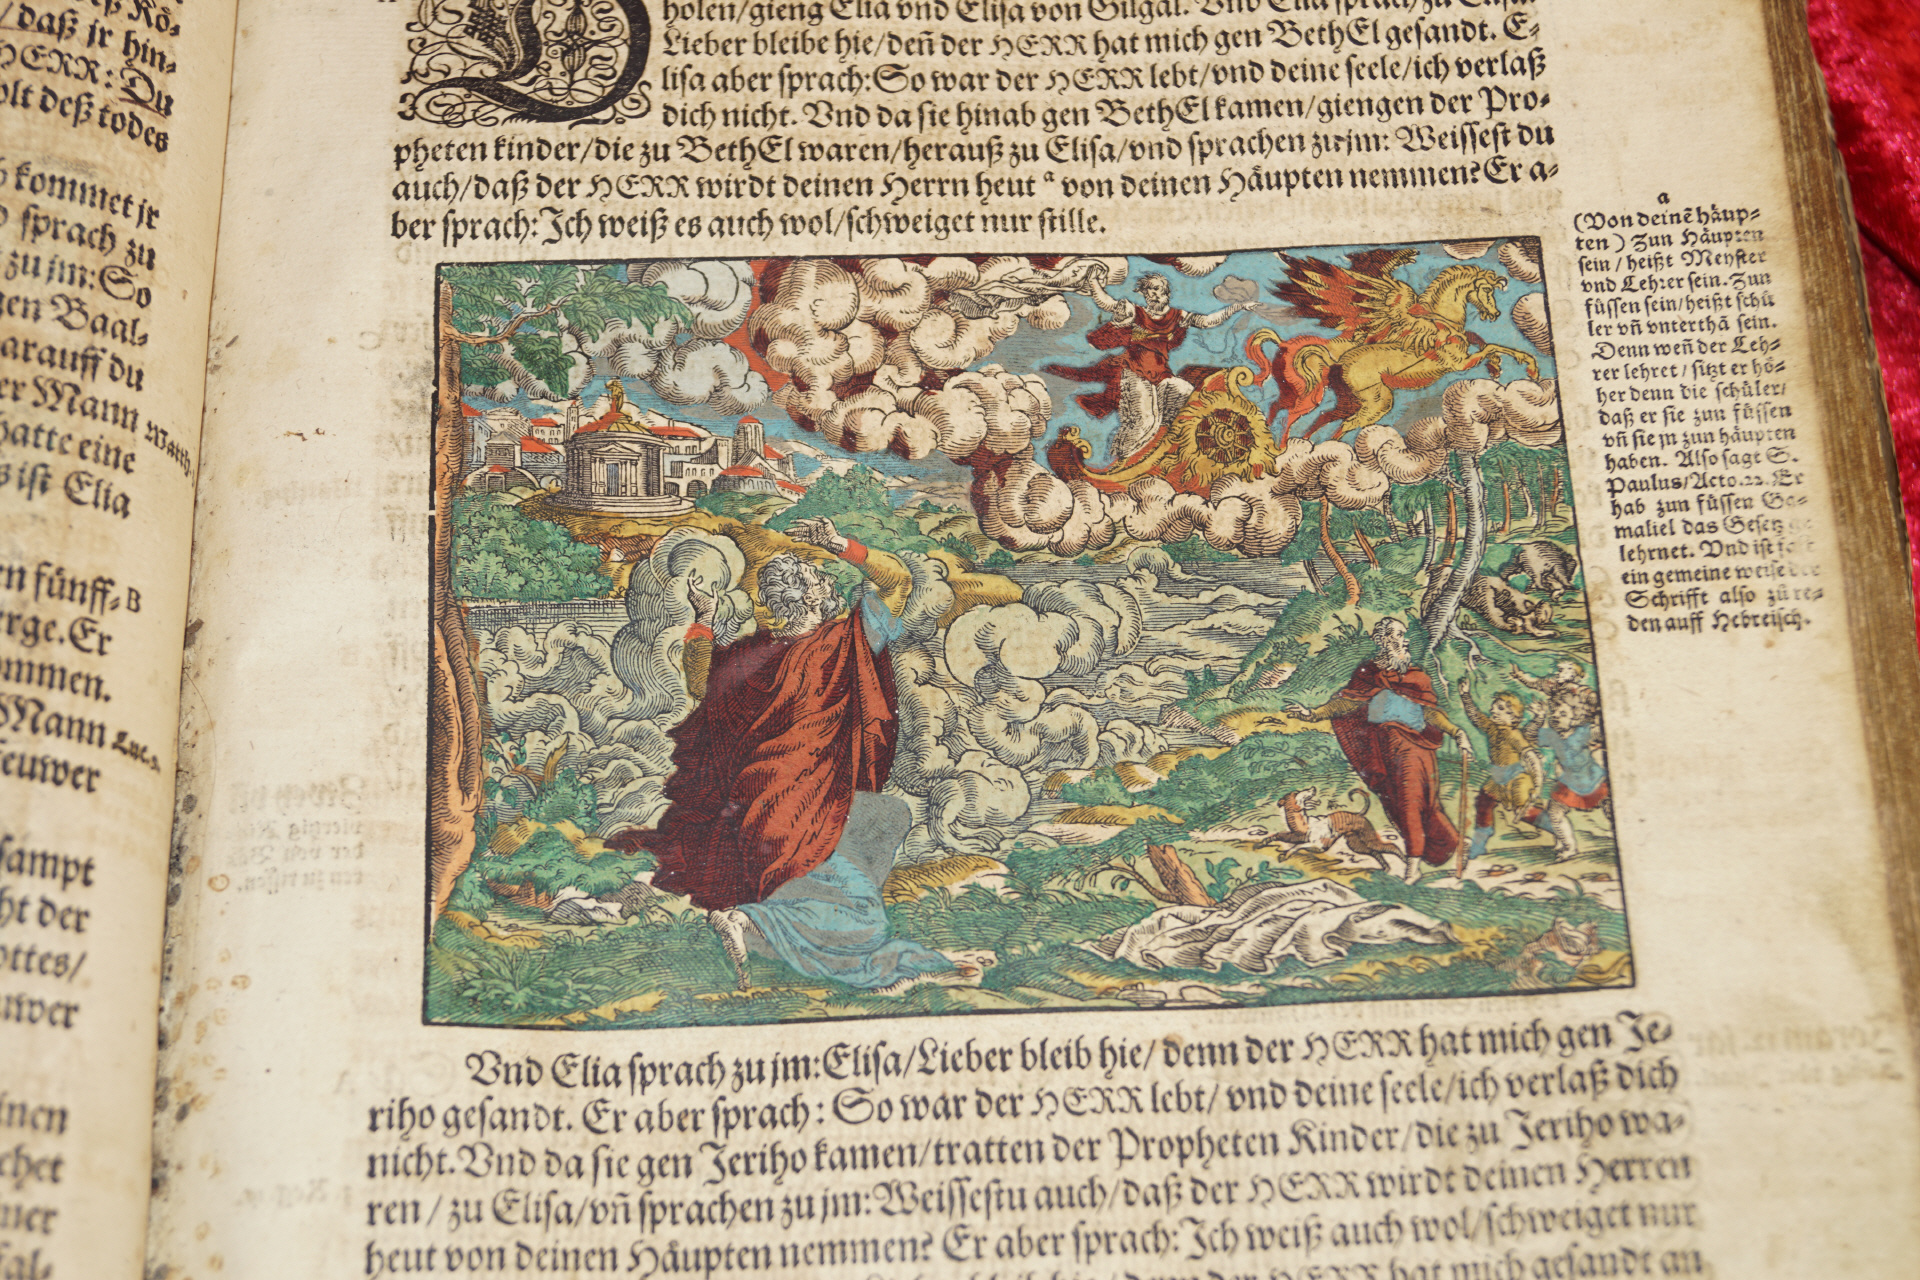 daß jr hin-
HERR: Du
olt deß todes
kommet jr
sprach zu
zu jm: So
Baal-
arauff du
er Mann
hatte eine
ist Elia
fünff-
B
erge. Er
Mann
euwer
sampt
der
ottes/
uwer
holen/gieng Elia vnd Elisa von Gilgal. Vnd Elia sprach zu Elisa:
Lieber bleibe hie/den̄ der HERR hat mich gen BethEl gesandt. E-
lisa aber sprach: So war der HERR lebt/vnd deine seele/ich verlaß
dich nicht. Vnd da sie hinab gen BethEl kamen/giengen der Pro-
pheten kinder/die zu BethEl waren/herauß zu Elisa/vnd sprachen zu jm: Weissest du
auch/daß der HERR wirdt deinen Herrn heut ᵃ von deinen Häupten nemmen? Er a-
ber sprach: Ich weiß es auch wol/schweiget nur stille.
a
(Von deinē häup-
ten) Zun Häupten
sein/heißt Meyster
vnd Lehrer sein. Zun
füssen sein/heißt schü
ler vn̄ vnterthā sein.
Denn wen̄ der Leh-
rer lehret/sitzt er hö-
her denn die schüler/
daß er sie zun füssen
vn̄ sie jn zun häupten
haben. Also sagt S.
Paulus/Acto.22. Er
hab zun füssen Ga-
maliel das Gesetz
lehrnet. Vnd ist
ein gemeine weise der
Schrifft also zü re-
den auff Hebreisch.
Vnd Elia sprach zu jm: Elisa/Lieber bleib hie/denn der HERR hat mich gen Je-
riho gesandt. Er aber sprach: So war der HERR lebt/vnd deine seele/ich verlaß dich
nicht. Vnd da sie gen Jeriho kamen/tratten der Propheten Kinder/die zu Jeriho wa-
ren/zu Elisa/vn̄ sprachen zu jm: Weissestu auch/daß der HERR wirdt deinen Herren
heut von deinen Häupten nemmen? Er aber sprach: Ich weiß auch wol/schweiget nur
HERR hat mich gesandt an